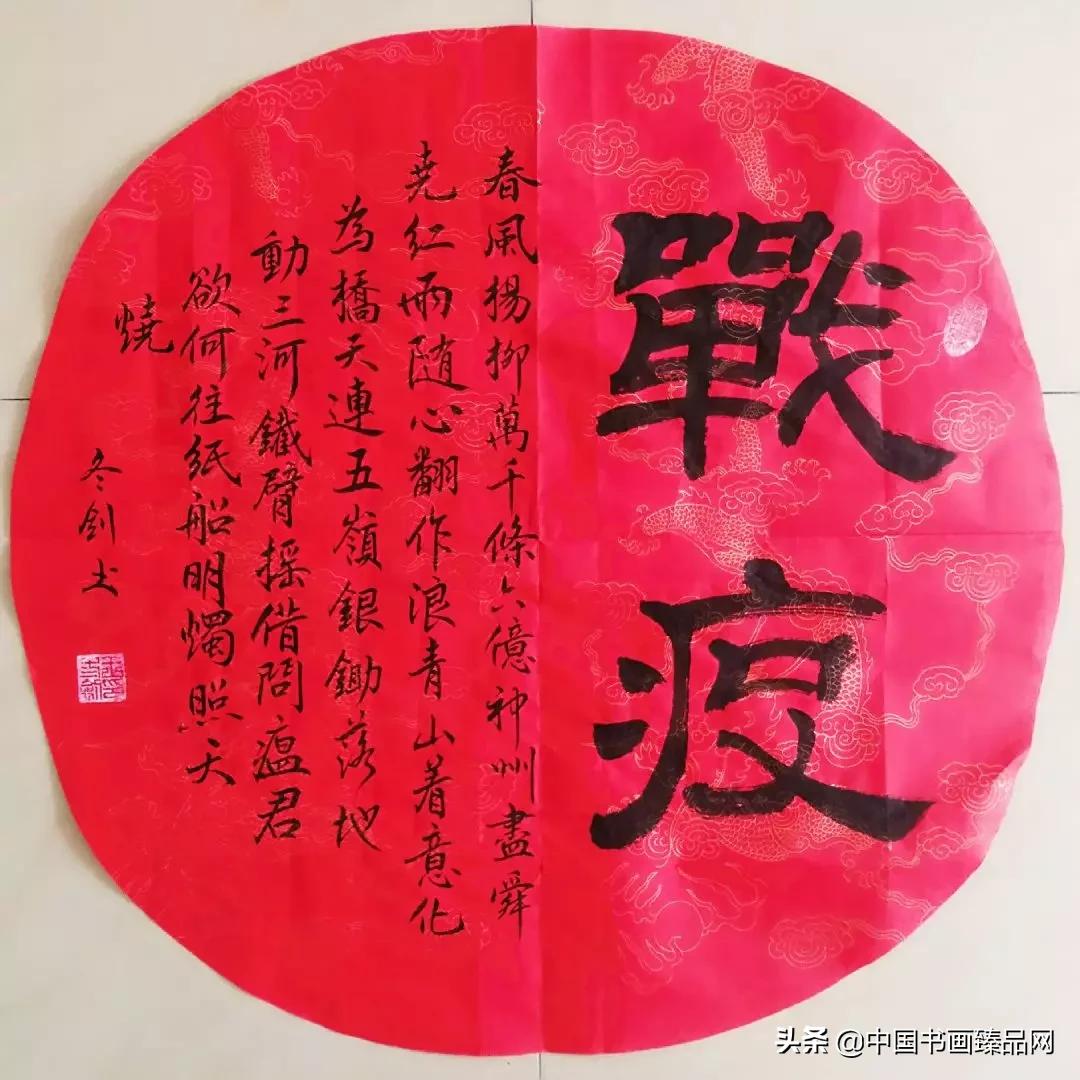 戰疫
春風楊柳萬千條六億神州盡舜
堯紅雨随心翻作浪青山着意化
為橋天連五嶺銀鋤落地
動三河鐵臂摇借問瘟君
欲何往纸船明燭照天
燒
冬剑书
头条 @中国书画臻品网